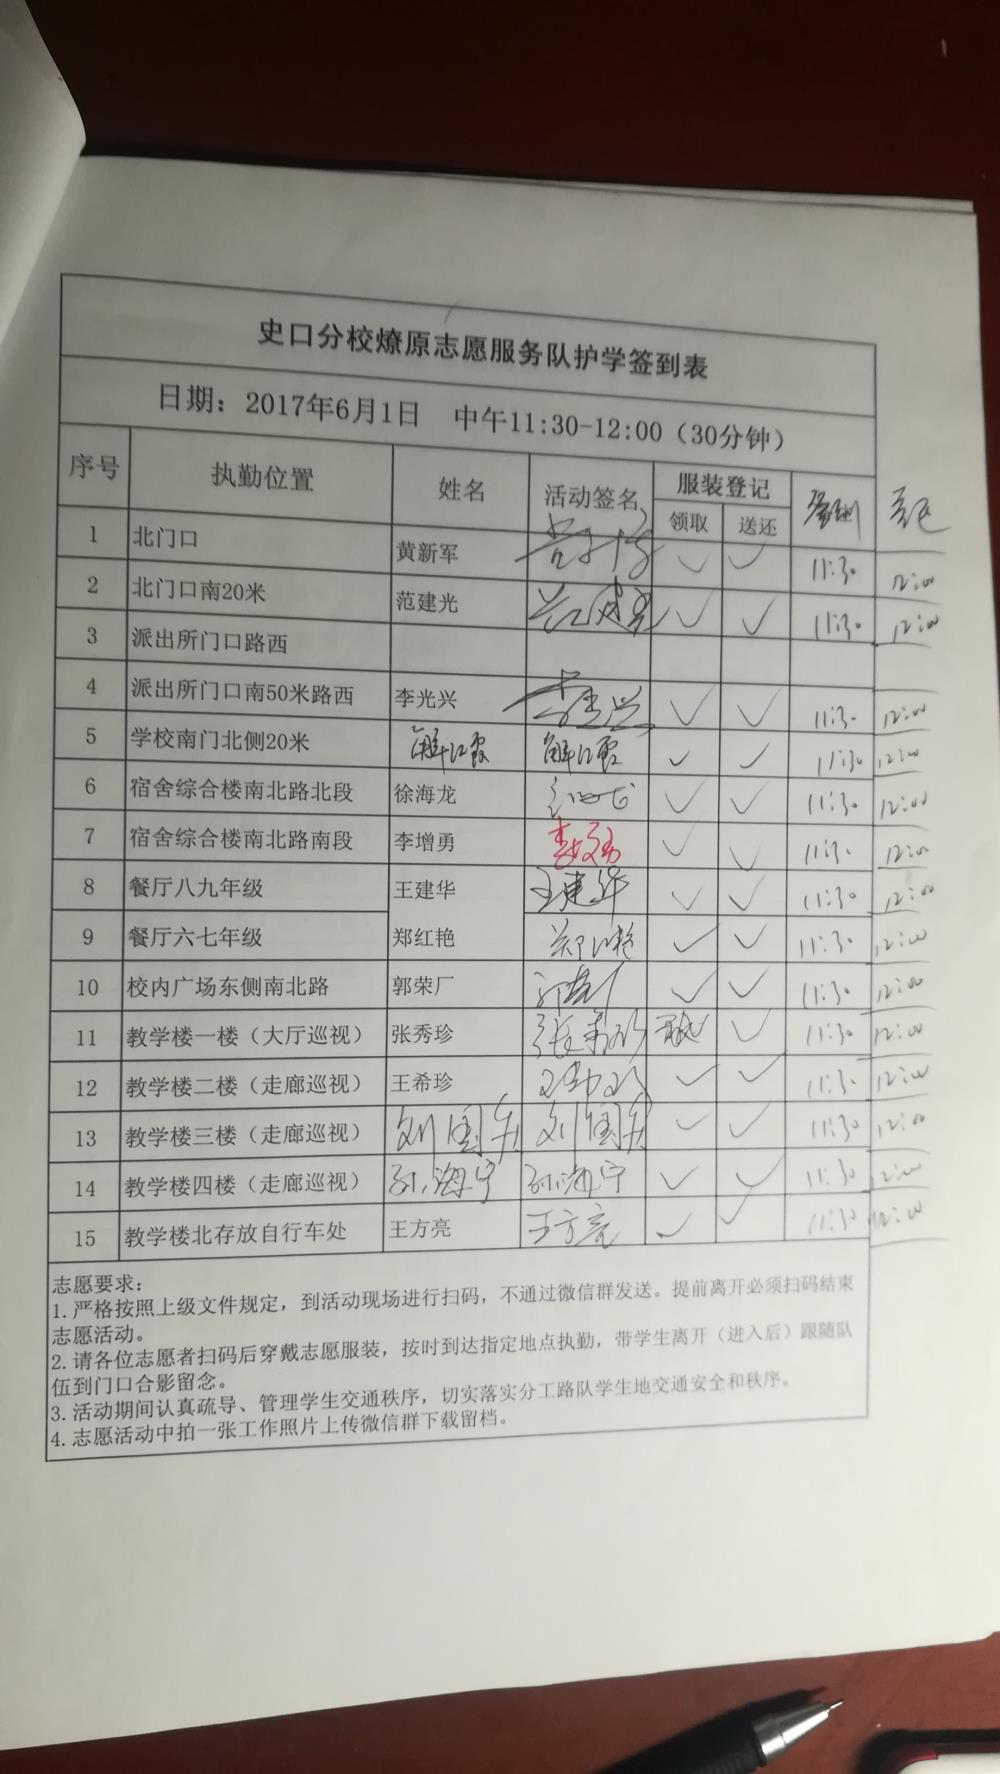 史口分校燎原志愿服务队护学签到表
日期：2017年6月1日 中午11:30-12:00（30分钟）
序号 执勤位置 姓名 活动签名 服装登记
领取 送还
1 北门口 黄新军 ✓ ✓ 11:30 12:00
2 北门口南20米 范建光 范建光 ✓ ✓ 11:30 12:00
3 派出所门口路西
4 派出所门口南50米路西 李光兴 李光兴 ✓ ✓ 11:30 12:00
5 学校南门北侧20米 解江霞 解江霞 ✓ ✓ 11:30 12:00
6 宿舍综合楼南北路北段 徐海龙 ✓ ✓ 11:30 12:00
7 宿舍综合楼南北路南段 李增勇 ✓ ✓ 11:30 12:00
8 餐厅八九年级 王建华 王建华 ✓ ✓ 11:30 12:00
9 餐厅六七年级 郑红艳 郑红艳 ✓ ✓ 11:30 12:00
10 校内广场东侧南北路 郭荣厂 郭荣厂 ✓ ✓ 11:30 12:00
11 教学楼一楼（大厅巡视） 张秀珍 张秀珍 ✓ 11:30 12:00
12 教学楼二楼（走廊巡视） 王希珍 王希珍 ✓ ✓ 11:30 12:00
13 教学楼三楼（走廊巡视） 刘国兵 刘国兵 ✓ ✓ 11:30 12:00
14 教学楼四楼（走廊巡视） 孙海宁 孙海宁 ✓ ✓ 11:30 12:00
15 教学楼北存放自行车处 王方亮 王方亮 ✓ ✓ 11:30 12:00
志愿要求：
1.严格按照上级文件规定，到活动现场进行扫码，不通过微信群发送。提前离开必须扫码结束
志愿活动。
2.请各位志愿者扫码后穿戴志愿服装，按时到达指定地点执勤，带学生离开（进入后）跟随队
伍到门口合影留念。
3.活动期间认真疏导、管理学生交通秩序，切实落实分工路队学生地交通安全和秩序。
4.志愿活动中拍一张工作照片上传微信群下载留档。